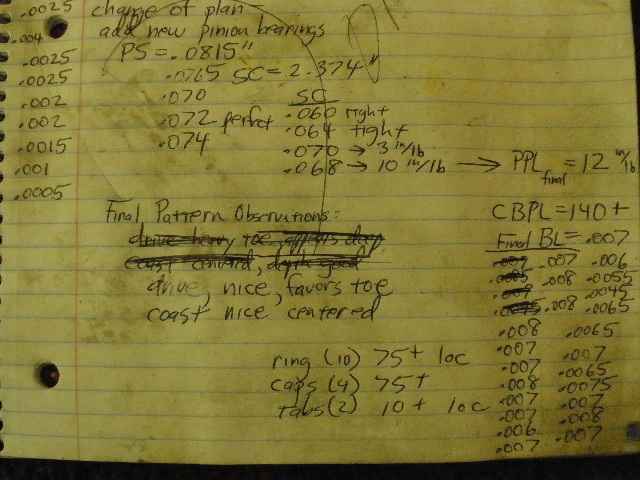 .0025
.004
.0025
.0025
.002
.002
.0015
.001
.0005
change of plan
add new pinion bearings
PS = .0815"
.0765 SC = 2.374"
.070
.072 perfect
.074
SC
.060 right
.064 tight
.070 → 3 in/lb
.068 → 10 in/lb → PPL final = 12 in/lb
CBPL = 140+
Final Pattern Observations:
drive heavy toe, appears deep
coast centered, depth good
drive, nice, favors toe
coast nice centered
ring (10) 75+ loc
caps (4) 75+
tabs (2) 10+ loc
Final BL = .007
.007 .007 .006
.008 .0055
.007 .0045
.008 .0065
.008 .0065
.007 .007
.007 .0065
.008 .0075
.007 .007
.007 .008
.006 .007
.007